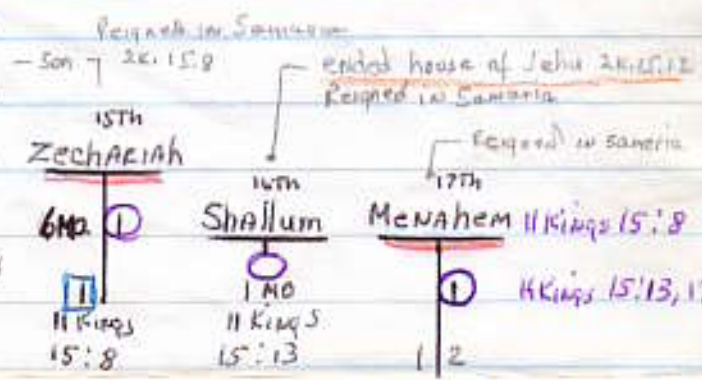 Reigned in Samaria
- Son - 2K. 15:8
ended house of Jehu 2K.15:12
Reigned in Samaria
Reigned in Sameria
15Th
ZechARIAh
16Th
17Th
6MO. 1
ShAllum
MeNAhem
II Kings 15:8
1
1 MO
1
II Kings 15:13, 1
II Kings
15:8
II Kings
15:13
1 2